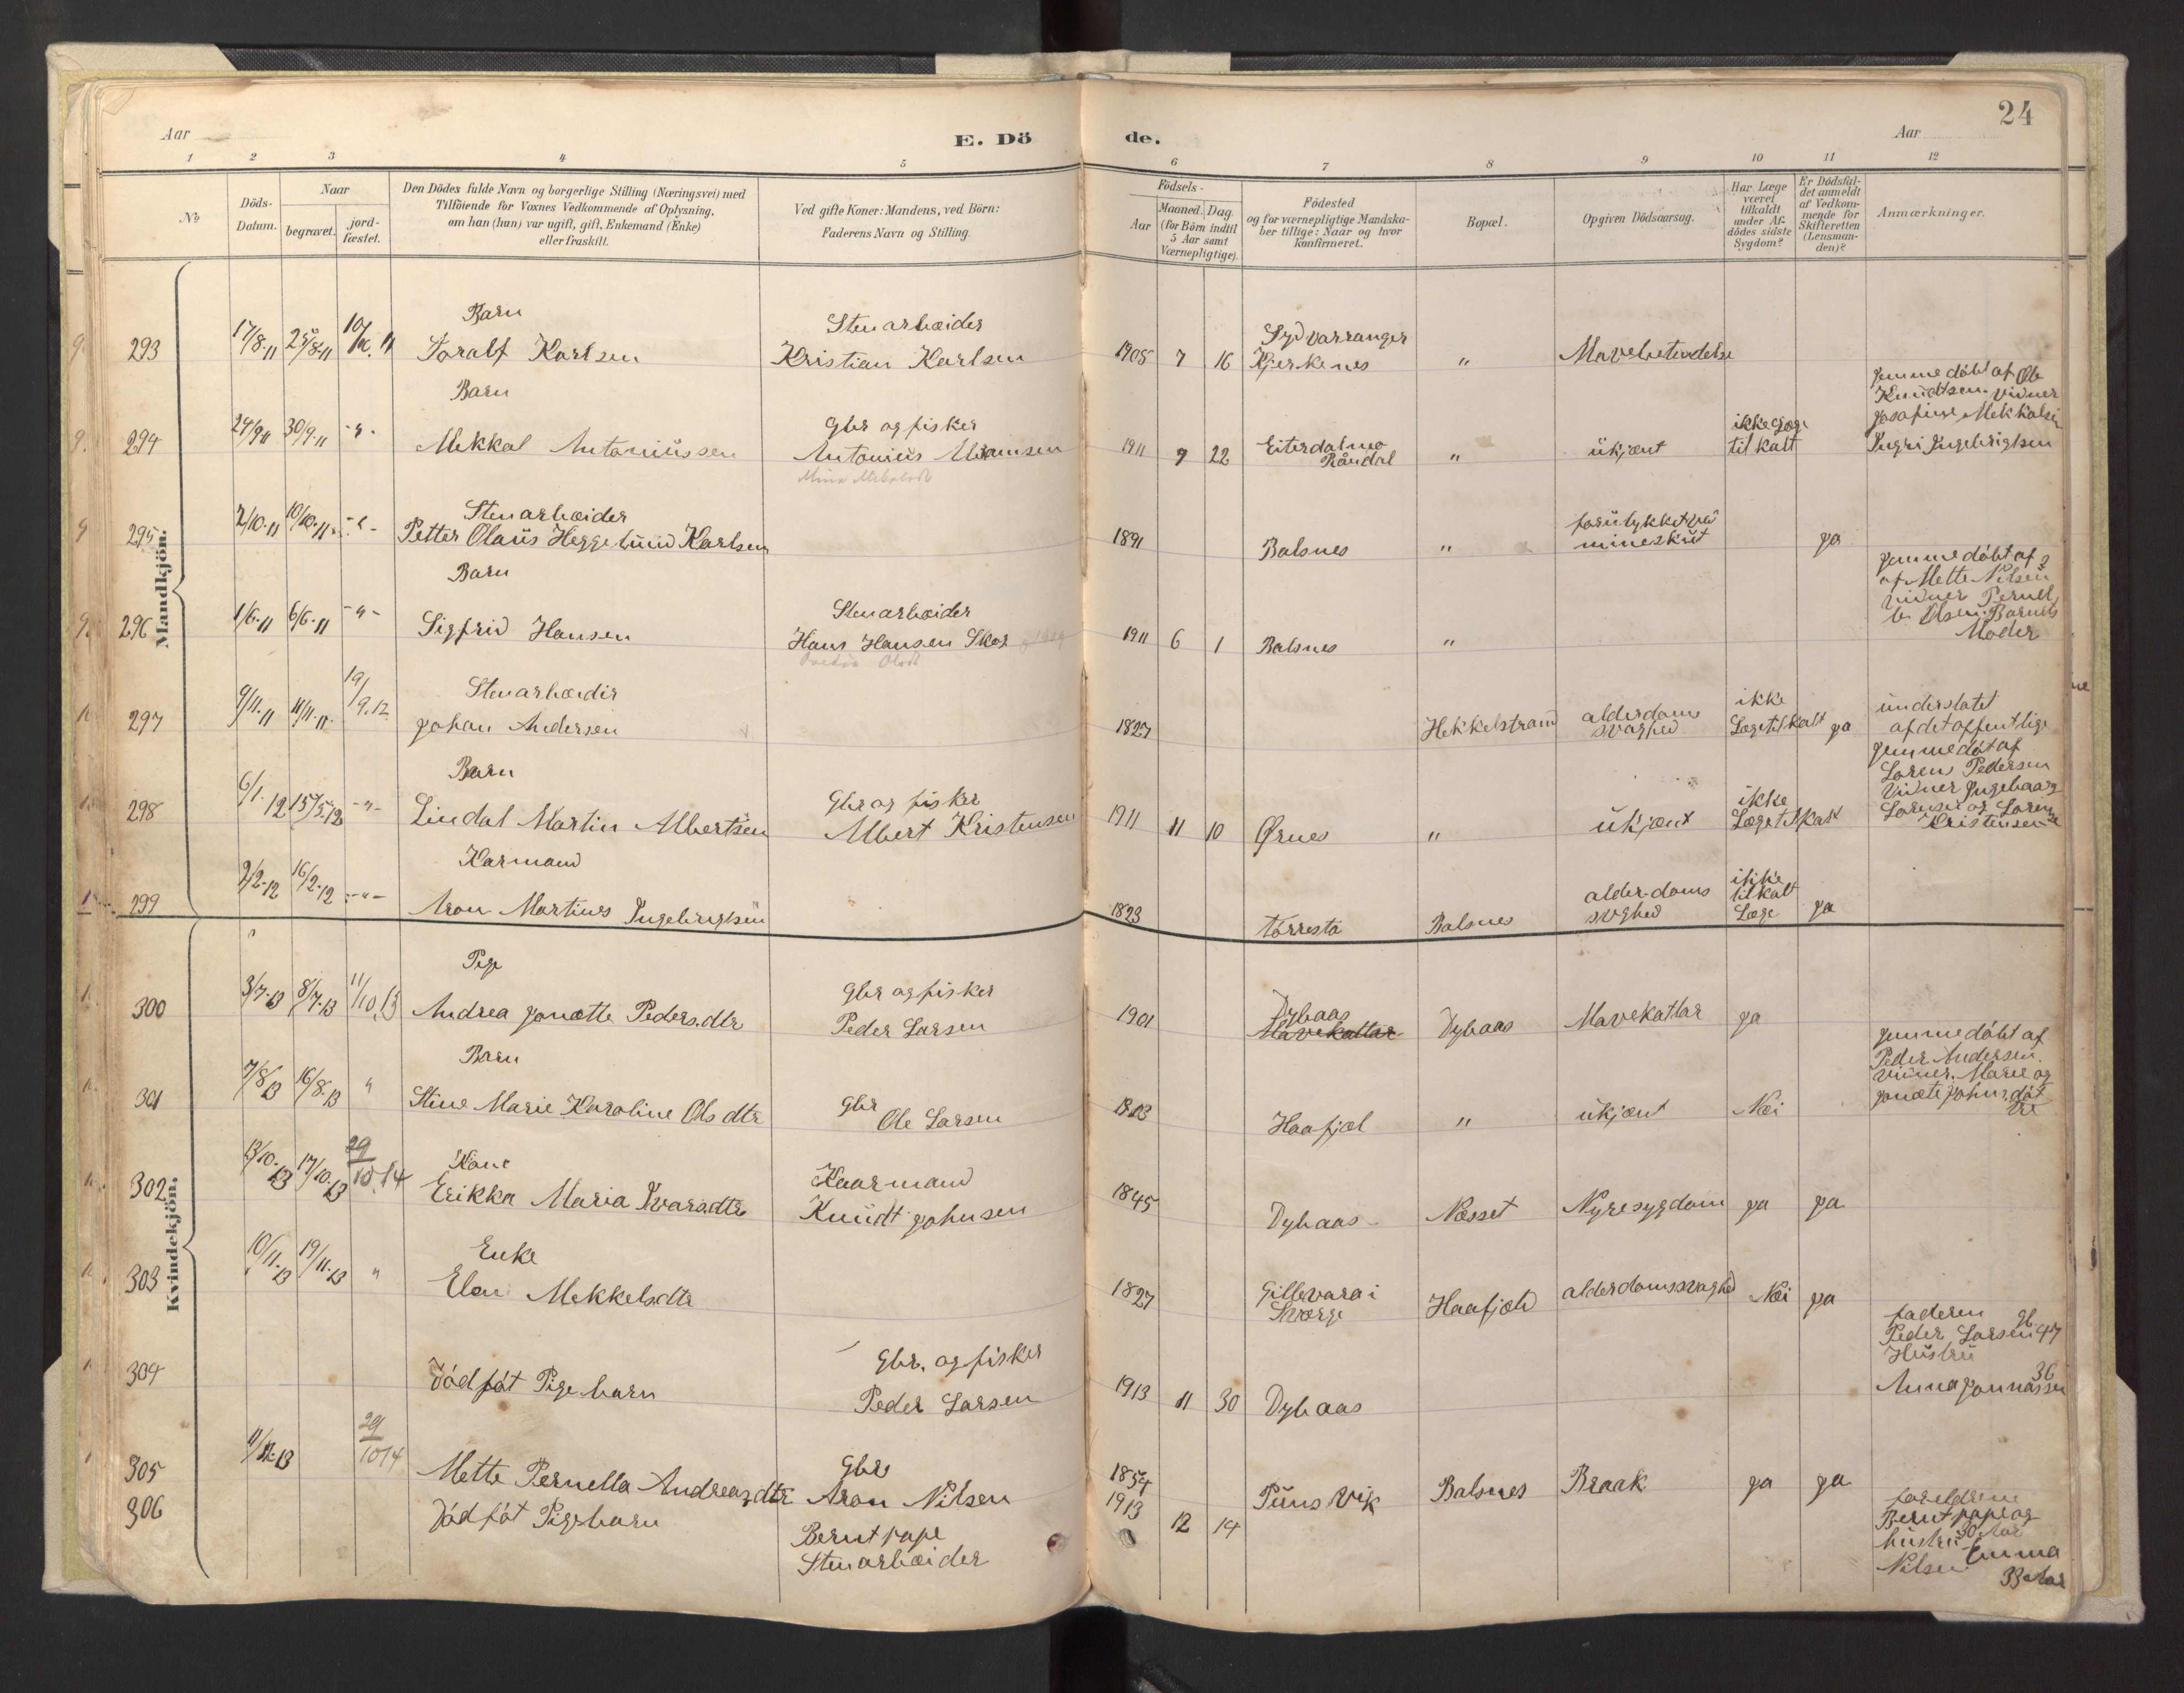 24
Aar
E. Dö
de.
Aar
1 2 3 4 5 6 7 8 9 10 11 12
No
Döds-
Datum.
Naar
begravet.
jord-
fæstet.
Den Dödes fulde Navn og borgerlige Stilling (Næringsvei) med
Tilföiende for Voxnes Vedkommende af Oplysning,
om han (hun) var ugift, gift, Enkemand (Enke)
eller fraskilt.
Ved gifte Koner: Mandens, ved Börn:
Faderens Navn og Stilling.
Födsels-
Aar
Maaned. Dag.
(for Börn indtil
5 Aar samt
Værnepligtige).
Födested
og for værnepligtige Mandska-
ber tillige: Naar og hvor
konfirmeret.
Bopæl.
Opgiven Dödsaarsag.
Har Læge
været
tilkaldt
under Af-
dödes sidste
Sygdom?
Er Dödsfal-
det anmeldt
af Vedkom-
mende for
Skifteretten
(Lensman-
den)?
Anmærkninger.
Mandkjön.
Barn
Stenarbeider
Sydvarranger
293 17/8-11 25/8-11 Toralf Karlsen Kristian Karlsen 1905 7 16 Kjerkenes " Mavebetendelse
Barn
Gbr og fisker
294 24/9-11 30/9-11 -"- Mekkal Antoniussen Antonius Abramsen 1911 9 22 Eiterdalmo
Råndal " ukjent
ikke Læge
tilkalt
jemmedöbt af Ole
Knudtsen. vidner
Josafine Mekkalsen
Ingri Ingebrigtsen
Stenarbeider
295 2/10-11 10/10-11 -"- Petter Olaus Heggelund Karlsen 1891 Balsnes "
forulykket ved
mineskut
ja
Barn
Stenarbeider
296 1/6-11 6/6-11 -"- Sigfrid Hansen Hans Hansen Skar 1911 6 1 Balsnes "
jemmedöbt af
af Mette Nilsen
vidner Pernel
Olsen. Barnets
Moder
Stenarbeider
297 9/11-11 11/11-11 19/9.12 Johan Andersen 1827 Hekkelstrand
alderdoms
svaghed
ikke
Læge tilkalt ja
understøtet
af det offentlige
Barn
Gbr og fisker
298 6/1-12 15/5-12 -"- Lindal Martin Albertsen Albert Kristensen 1911 11 10 Ørnes " ukjent
ikke
Læge tilkalt
jemmedöt af
Soren Pedersen
Vidner Ingebaarg
Sorensen og Soren
Kristensen
Karmand
299 2/2-12 16/2-12 -"- Aron Martines Ingebrigtsen 1823 Torresta Balsnes
alder-doms
svghed
ikke
tilkalt
Læge ja
Kvindekjön.
Pige
Gbr og fisker
300 3/7-13 8/7-13 11/10.13 Andrea Jonætte Peders.dtr Peder Larsen 1901
Dybaas
Mavekattar
Dybaas Mavekattar ja
Barn
Gbr
301 7/8 13 16/8-13 " Stine Marie Karoline Ols dtr Ole Larsen Haafjel " ukjent Nei
jemmedöbt af
Peder Andersen.
vidner. Marie og
jonæte johns.døt
tre
Kone
Kaarmand
302 13/10-13 17/10-13 29/10.14 Erikka Maria Ivars.dtr Knudt johnsen 1845 Dybaas Nesset Nyresygdom ja ja
Enke
303 10/11-13 19/11-13 " Elen Mekkels.dtr 1827
Gillevara i
Sverge
Haafjeld alderdomssvaghed Nei ja
Gbr. og fisker
304 Dødføt Pigebarn Peder Larsen 1913 11 30 Dybaas
faderen
Peder Larsen 47
Hustru
36
Anna Jonnassen
Gbr
305 29/1014 Mette Pernella Andreas.dtr Aron Nilsen 1854 Puns Vik Balsnes Braak ja ja
306 Dødføt Pigebarn
Bernt pape
Stenarbeider
1913 12 14
foreldrene
Bernt pape og
hustru Emma
Nilsen 33 Aar